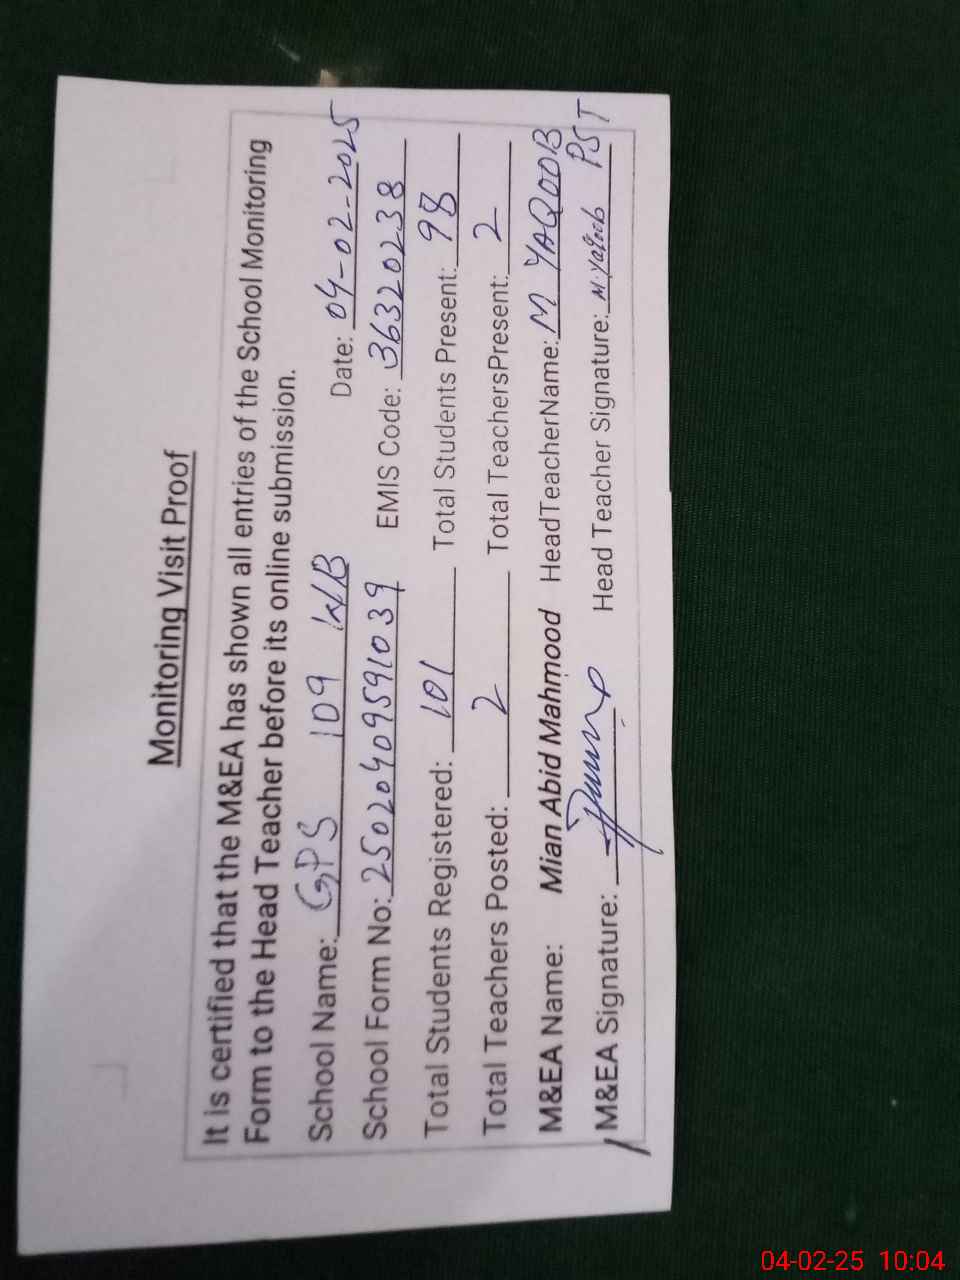 Monitoring Visit Proof
It is certified that the M&EA has shown all entries of the School Monitoring
Form to the Head Teacher before its online submission.
School Name: GPS 109 WB Date: 04-02-2025
School Form No: 25020409591039 EMIS Code: 36320238
Total Students Registered: 101 Total Students Present: 98
Total Teachers Posted: 2 Total TeachersPresent: 2
M&EA Name: Mian Abid Mahmood HeadTeacherName: M YAQOOB
M&EA Signature: Head Teacher Signature: M.Yaqoob PST
04-02-25 10:04